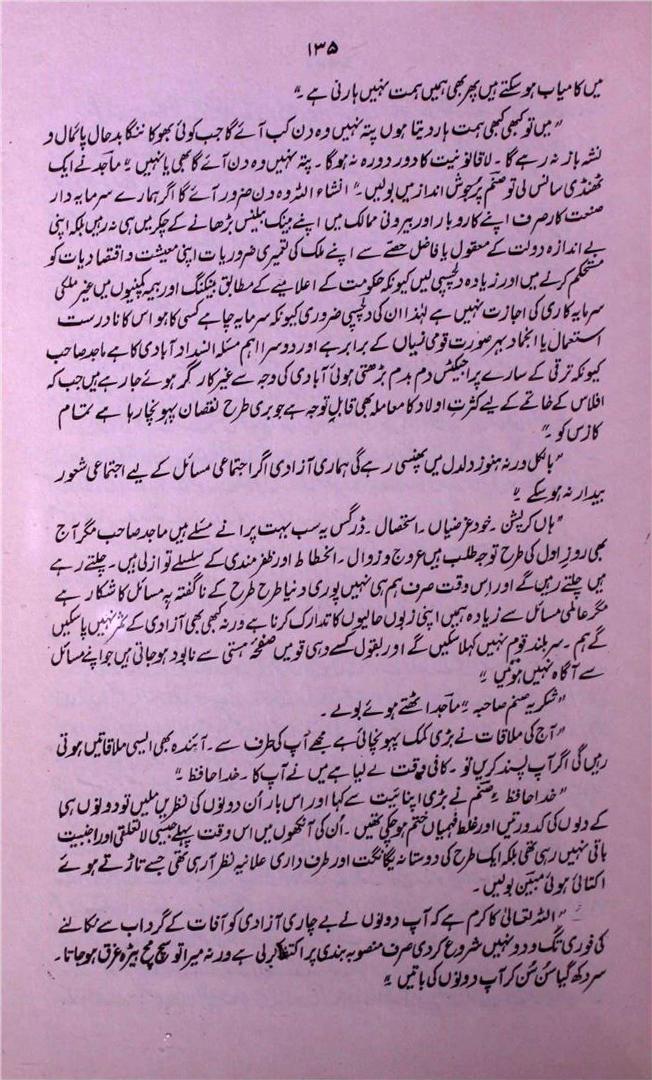 ۱۳۵
میں کامیاب ہوسکتے ہیں پھر بھی ہمیں ہمت نہیں ہارنی ہے۔"
"میں تو کبھی کبھی ہمت ہار دیتا ہوں پتہ نہیں وہ دن کب آئے گا جب کوئی بھوکا ننگا بدحال پائمال و
نشہ باز نہ رہے گا۔ لاقانونیت کا دور دورہ نہ ہوگا۔ پتہ نہیں وہ دن آئے گا بھی یا نہیں" ماجد نے ایک
ٹھنڈی سانس لی تو صنم پُرجوش انداز میں بولیں۔" انشاء اللہ وہ دن ضرور آئے گا اگر ہمارے سرمایہ دار
صنعت کار صرف اپنے کاروبار اور بیرونی ممالک میں اپنے بینک بیلنس بڑھانے کے چکر میں ہی نہ رہیں بلکہ اپنی
بے اندازہ دولت کے معقول یا فاضل حصّے سے اپنے ملک کی تعمیری ضروریات اپنی معیشت و اقتصادیات کو
مستحکم کرنے میں اور زیادہ دلچسپی لیں کیونکہ حکومت کے اعلامیے کے مطابق بینکنگ اور بیمہ کمپنیوں میں غیر ملکی
سرمایہ کاری کی اجازت نہیں ہے لہٰذا ان کی دلچسپی ضروری کیونکہ سرمایہ چاہے کسی کا ہو اس کا نادرست
استعمال یا انجماد بہر صورت قومی زیاں کے برابر ہے اور دوسرا اہم مسئلہ انسداد آبادی کا ہے ماجد صاحب
کیونکہ ترقی کے سارے پراجیکٹس دم بدم بڑھتی ہوئی آبادی کی وجہ سے غیر کارگر ہوئے جارہے ہیں جب کہ
افلاس کے خاتمے کے لیے کثرتِ اولاد کا معاملہ بھی قابلِ توجہ ہے جو بری طرح نقصان پہونچا رہا ہے تمام
کازس کو۔"
"بالکل ورنہ ہنوز دلدل میں پھنسی رہے گی ہماری آزادی اگر اجتماعی مسائل کے لیے اجتماعی شعور
بیدار نہ ہوسکے"
"ہاں کرپشن۔ خود غرضیاں۔ استحصال۔ ڈرگس یہ سب بہت پرانے مسئلے ہیں ماجد صاحب مگر آج
بھی روزِ اول کی طرح توجہ طلب ہیں عروج و زوال۔ انحطاط اور ظفرمندی کے سلسلے تو ازلی ہیں۔ چلتے رہے
ہیں چلتے رہیں گے اور اس وقت صرف ہم ہی نہیں پوری دنیا طرح طرح کے ناگفتہ بہ مسائل کا شکار ہے
مگر عالمی مسائل سے زیادہ ہمیں اپنی زبوں حالیوں کا تدارک کرنا ہے ورنہ کبھی بھی آزادی کے ثمر نہیں پاسکیں
گے ہم۔ سربلند قوم نہیں کہلا سکیں گے اور بقول کسے وہی قومیں صفحۂ ہستی سے نابود ہوجاتی ہیں جو اپنے مسائل
سے آگاہ نہیں ہوتیں"
"شکریہ صنم صاحبہ" ماجد اٹھتے ہوئے بولے۔
"آج کی ملاقات نے بڑی کمک پہونچائی ہے مجھے آپ کی طرف سے۔ آئندہ بھی ایسی ملاقاتیں ہوتی
رہیں گی اگر آپ پسند کریں تو۔ کافی وقت لے لیا ہے میں نے آپ کا۔ خدا حافظ۔"
"خدا حافظ" صنم نے بڑی اپنائیت سے کہا اور اس بار اُن دونوں کی نظریں ملیں تو دونوں ہی
کے دلوں کی کدورتیں اور غلط فہمیاں ختم ہوچکی تھیں۔ اُن کی آنکھوں میں اس وقت پہلے جیسی لاتعلقی اور اجنبیت
باقی نہیں رہی تھی بلکہ ایک طرح کی دوستانہ یگانگت اور طرف داری علانیہ نظر آرہی تھی جسے تاڑتے ہوئے
اکتائی ہوئی مبین بولیں۔
"اللہ تعالیٰ کا کرم ہے کہ آپ دونوں نے بے چاری آزادی کو آفات کے گرداب سے نکالنے
کی فوری تگ و دو نہیں شروع کردی صرف منصوبہ بندی پر اکتفا کرلی ہے ورنہ میرا تو سچ مچ بیڑہ غرق ہوجاتا۔
سر دکھ گیا سُن سُن کر آپ دونوں کی باتیں"